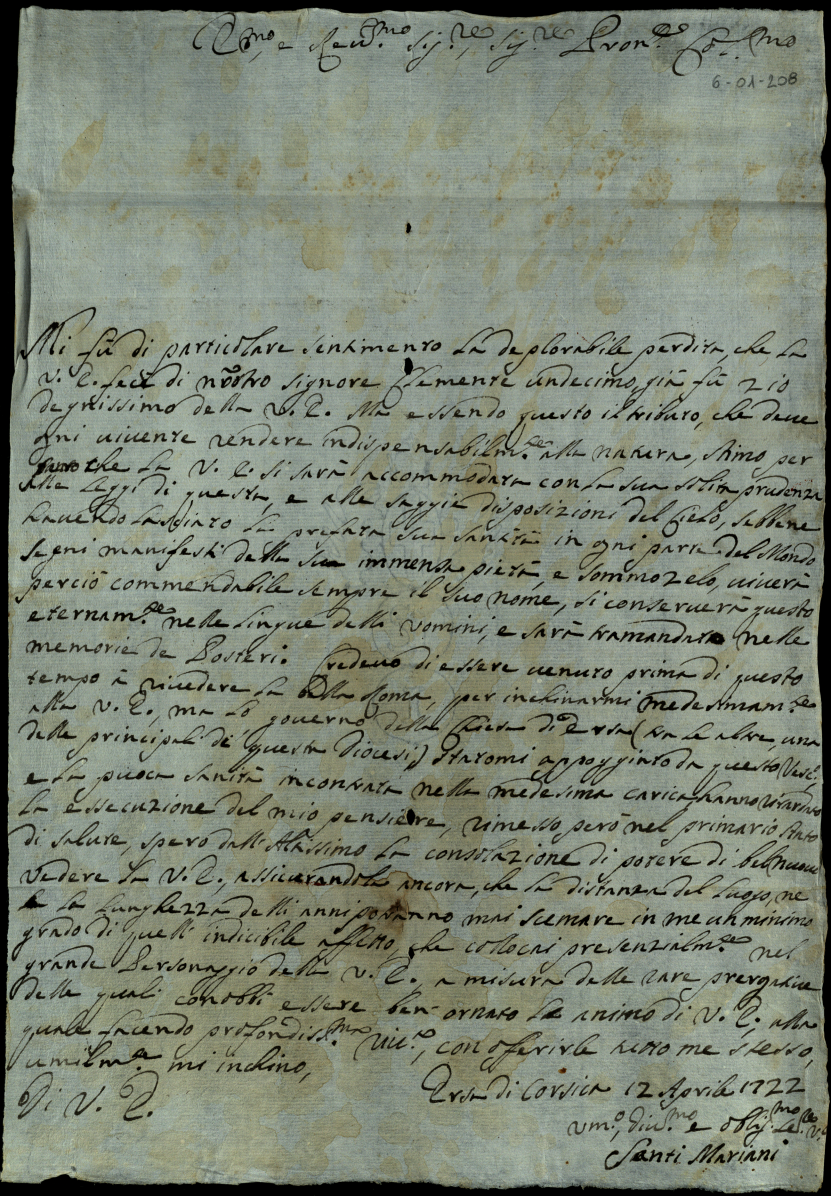 Em.mo, e Reu.mo Sig.re, Sig.re Pron.e Col.mo
6-01-208
Mi fù di particolare sentimento la deplorabile perdita, che la
V. E. fece di nostro signore Clemente undecimo, già fù zio
degnissimo della V. E. Ma essendo questo il tributo, che deue
ogni uiuente rendere indispensabilm.te alla natura, stimo per
che la V. E. si sarà accommodata con la sua solita prudenza
alle leggi di questa, e alle saggie disposizioni del Cielo, sebbene
hauendo lasciato la prefata sua santità in ogni parte del Mondo
segni manifesti della sua immensa pietà, e sommo zelo, uiuerà
perciò commendabile sempre il suo nome, si conseruerà questo
eternam.te nelle lingue delli uomini, e sarà tramandato nelle
memorie de Posteri. Credeuo di essere uenuto prima di questo
tempo à riuedere la bella Roma, per inchinarmi medesimam.te
alla V. E., ma lo gouerno della Chiesa di Ersa (tra le altre, una
delle principali di questa Diocesi,) statomi appoggiato da questo Vesc.o
e la puoca sanità incontrata nella medesima carica, hanno ritardato
la essecuzione del mio pensiere, rimesso però nel primario stato
di salute, spero dall'Altissimo la consolazione di potere di bel nuouo
vedere la V. E., assicurandola ancora, che la distanza del luogo, ne
la lunghezza delli anni potranno mai scemare in me un minimo
grado di quell'indicibile affetto, che collocai presenzialm.te nel
grande Personaggio della V. E., a misura delle rare prerogatiue
delle quali conobbi essere ben ornato lo animo di V. E., alla
quale facendo profondiss.ma riu.a, con offerirle tutto me stesso,
umilm.te mi inchino,
Di V. E.
Ersa di Corsica 12 Aprile 1722
Um.o, Diu.mo e oblig.mo se.re v.o
Santi Mariani